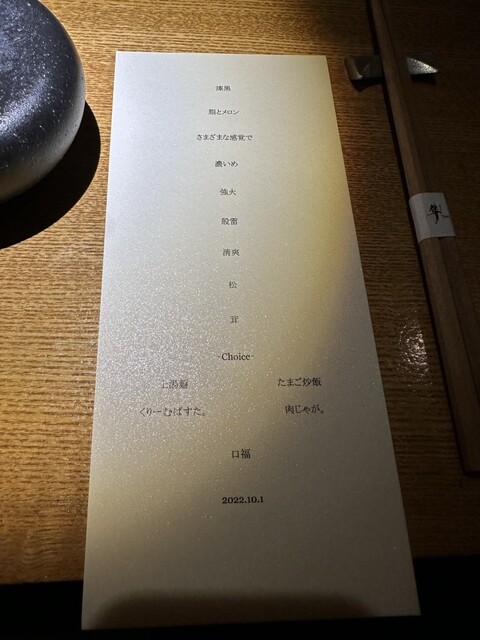 漆黒
脂とメロン
さまざまな感覚で
濃いめ
強火
殷雷
清爽
松
茸
-Choice-
上湯麺 たまご炒飯
くりーむぱすた。 肉じゃが。
口福
2022.10.1